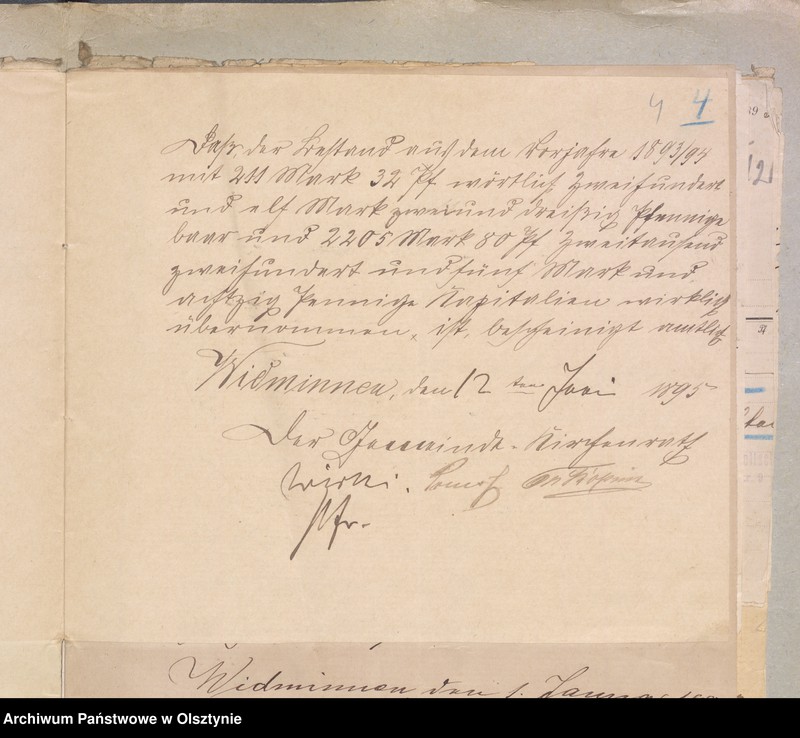 4 4
Daß, der Bestand aus dem Vorjahre 1893/94
mit 211 Mark 32 Pf wörtlich Zweihundert
und elf Mark zwei und dreißig Pfennige
baar und 2205 Mark 80 Pf Zweitausend
zweihundert und fünf Mark und
achtzig Pennige Kapitalien wirklich
übernommen, ist, bescheinigt amtlich
Widminnen, den 12 ten Juni 1895
Der Gemeinde-Kirchenrath
Pfr.
Widminnen den 1. Januar
Archiwum Państwowe w Olsztynie